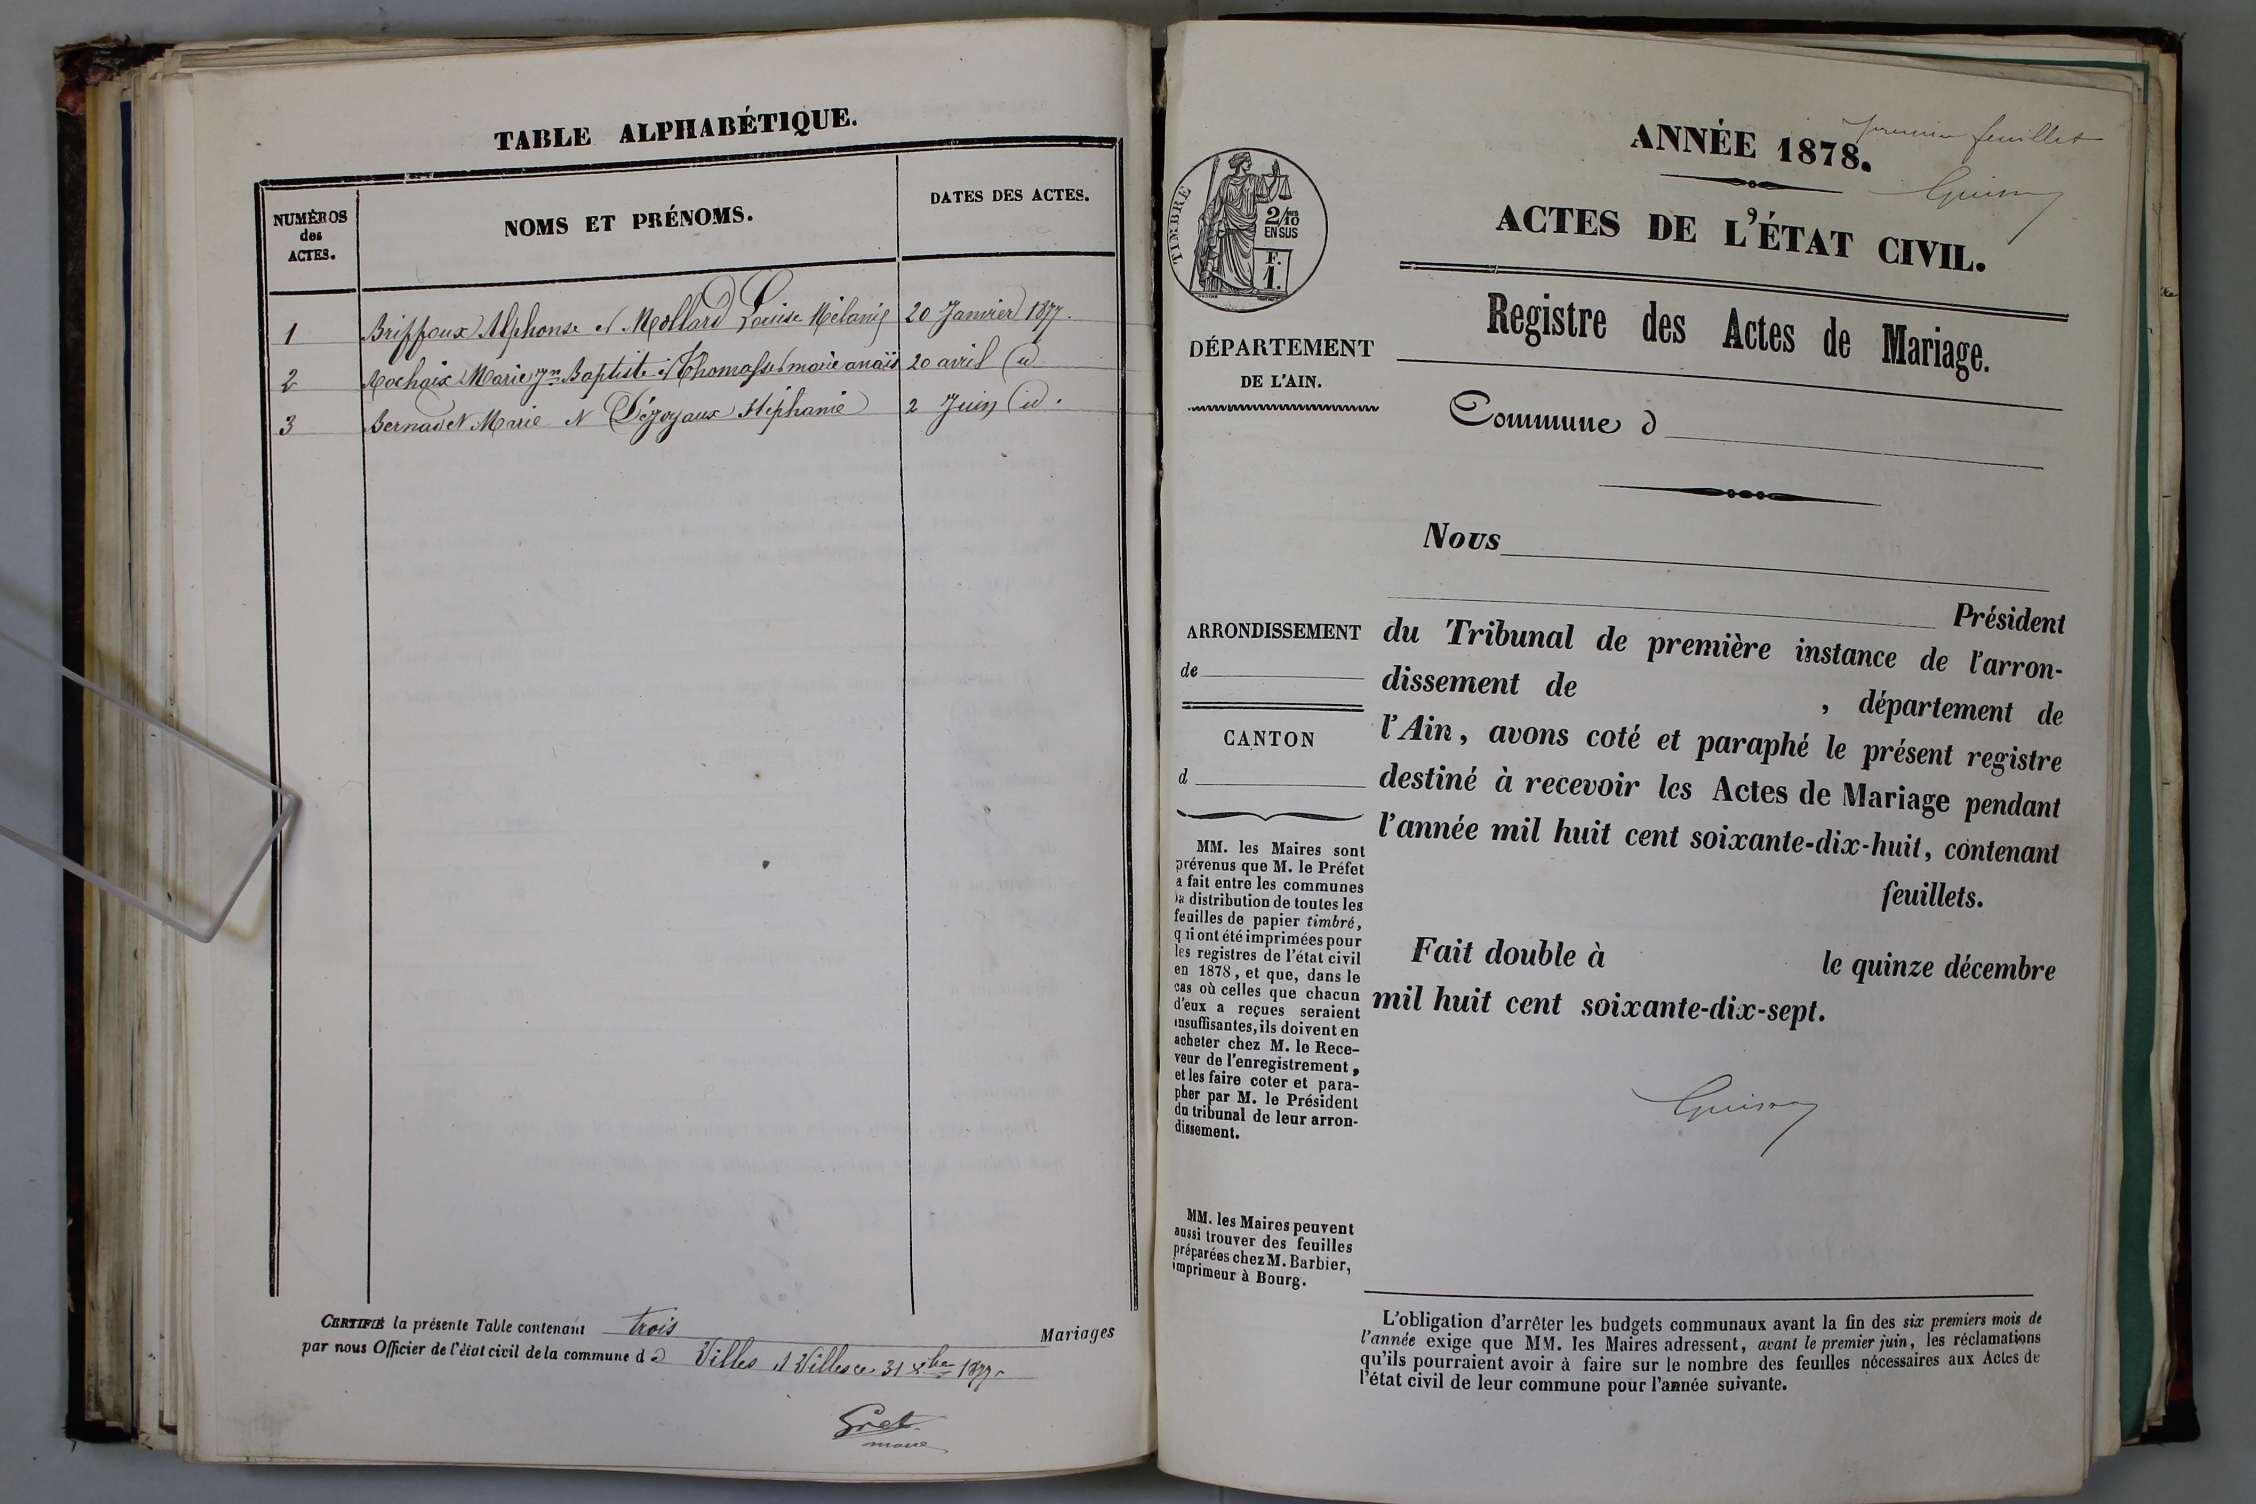 TABLE ALPHABÉTIQUE.
NUMÉROS
des
ACTES.
NOMS ET PRÉNOMS.
DATES DES ACTES.
1 Briffoux Alphonse et Mollard Louise Mélanie 20 Janvier 1877.
2 Rochaix Marie Jn Baptiste et Thomasset marie anaïs 20 avril id
3 Bernadet Marie et Dégoyaux Stéphanie 2 Juin id.
CERTIFIÉ la présente Table contenant trois Mariages
par nous Officier de l'état civil de la commune d e Villes à Villes ce 31 Xbre 1877.
Gret
maire
premier feuillet
ANNÉE 1878.
ACTES DE L'ÉTAT CIVIL.
TIMBRE
2/10 EN SUS
F.
1.
Registre des Actes de Mariage.
DÉPARTEMENT
DE L'AIN.
Commune d
Nous
Président
ARRONDISSEMENT
de
CANTON
d
du Tribunal de première instance de l'arron-
dissement de , département de
l'Ain, avons coté et paraphé le présent registre
destiné à recevoir les Actes de Mariage pendant
l'année mil huit cent soixante-dix-huit, contenant
feuillets.
Fait double à le quinze décembre
mil huit cent soixante-dix-sept.
MM. les Maires sont
prévenus que M. le Préfet
a fait entre les communes
la distribution de toutes les
feuilles de papier timbré,
qui ont été imprimées pour
les registres de l'état civil
en 1878, et que, dans le
cas où celles que chacun
d'eux a reçues seraient
insuffisantes, ils doivent en
acheter chez M. le Rece-
veur de l'enregistrement,
et les faire coter et para-
pher par M. le Président
du tribunal de leur arron-
dissement.
MM. les Maires peuvent
aussi trouver des feuilles
préparées chez M. Barbier,
imprimeur à Bourg.
L'obligation d'arrêter les budgets communaux avant la fin des six premiers mois de
l'année exige que MM. les Maires adressent, avant le premier juin, les réclamations
qu'ils pourraient avoir à faire sur le nombre des feuilles nécessaires aux Actes de
l'état civil de leur commune pour l'année suivante.